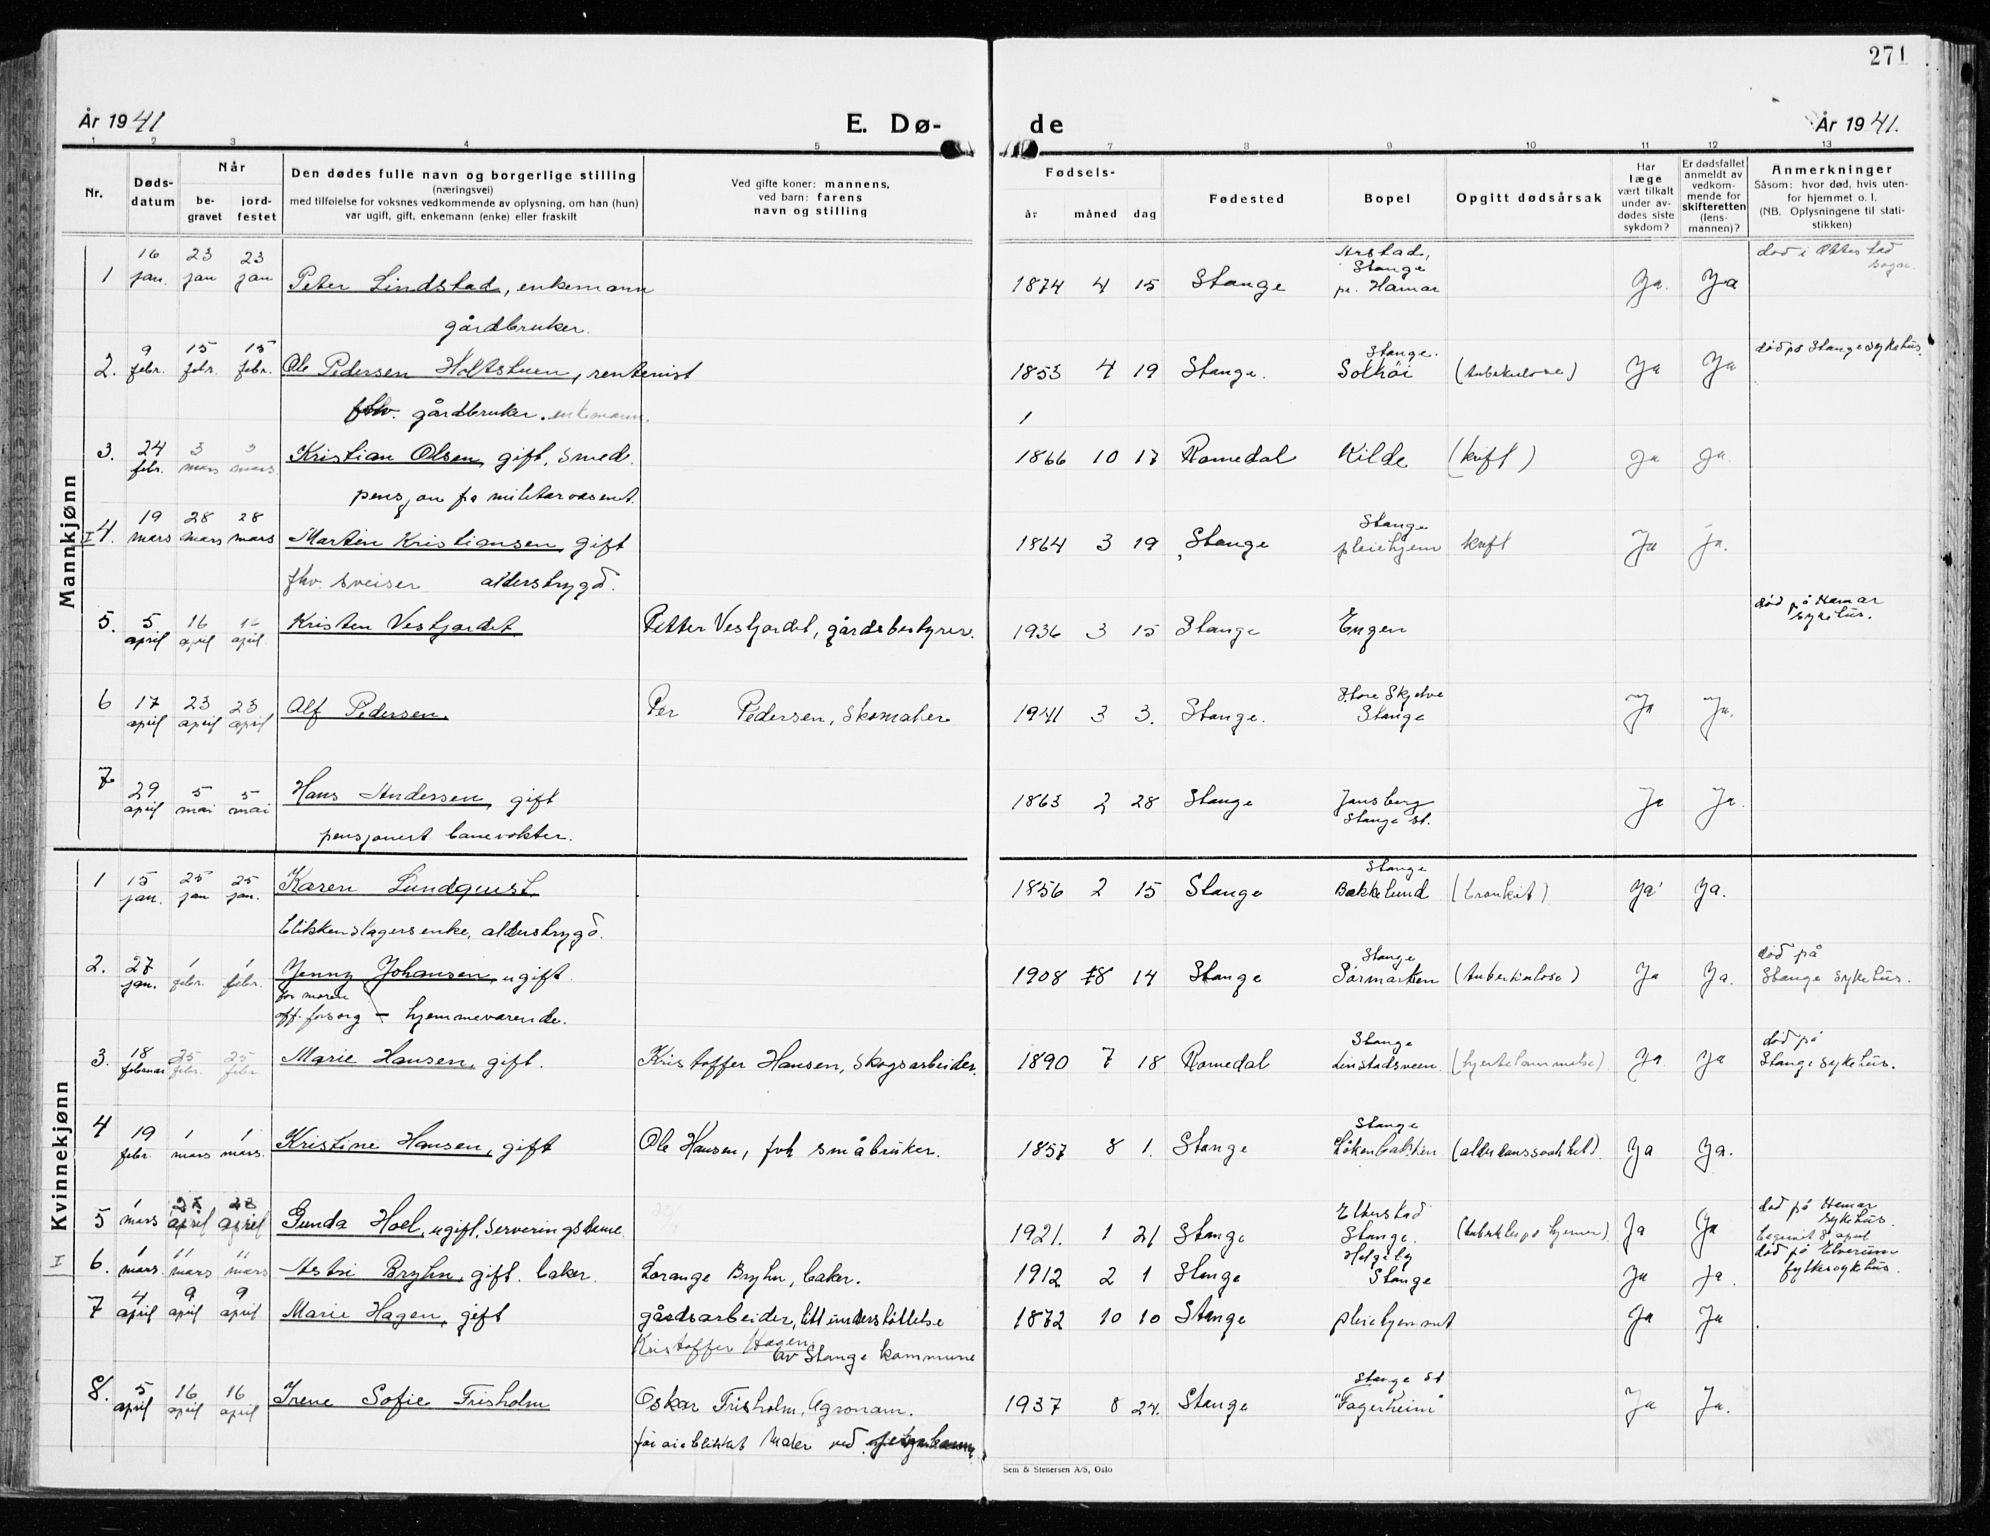 271
År 1941 E. Dø- de År 1941.
1 2 3 4 5 7 7 8 9 10 11 12 13
Nr.
Døds-
datum
Når
be-
gravet
jord-
festet
Den dødes fulle navn og borgerlige stilling
(næringsvei)
med tilføielse for voksnes vedkommende av oplysning, om han (hun)
var ugift, gift, enkemann (enke) eller fraskilt
Ved gifte koner: mannens,
ved barn: farens
navn og stilling
Fødsels-
år måned dag
Fødested
Bopel
Opgitt dødsårsak
Har
læge
vært tilkalt
under av-
dødes siste
sykdom?
Er dødsfallet
anmeldt av
vedkom-
mende for
skifteretten
(lens-
mannen)?
Anmerkninger
Såsom: hvor død, hvis uten-
for hjemmet o. l.
(NB. Oplysningene til stati-
stikken)
Mannkjønn
1 16 jan. 23 jan 23 jan Peter Lindstad, enkemann 1874 4 15 Stange Arstad, Stange pr. Hamar Ja. Ja død i Ottestad sogn.
gårdbruker.
2. 9 febr. 15 febr. 15 febr. Ole Pedersen Holtstuen, rentenist 1853 4 19 Stange. Stange. Solhøi (tuberkulose) Ja Ja død på Stange sykehus.
fhv. gårdbruker. enkemann. 1
3. 24 febr. 3 mars 3 mars. Kristian Olsen, gift, smed. 1866 10 17 Romedal Kilde (kreft) Ja Ja.
pensjon fra militærvæsenet.
I 4. 19 mars 28 mars 28 mars Martin Kristiansen, gift 1864 3 19 Stange Stange pleiehjem kreft Ja ja.
fhv. sveiser alderstrygd.
5. 5 april 16 april 16 april. Kristen Vestjordet Petter Vestjordet, gårdsbestyrer. 1936 3 15 Stange Engen død på Hamar sykehus.
6 17 april 23 april 23 april Alf Pedersen. Per Pedersen, Skomaker 1941 3 3. Stange. Store Skjelve Stange Ja Ja.
7 29 april 5 mai 5 mai Hans Andersen, gift 1863 2 28 Stange Jønsberg Stange st. Ja Ja.
pensjonert banevokter.
Kvinnekjønn
1 15 jan. 25 jan 25 jan. Karen Lundquist 1856 2 15 Stange Stange Bakkelund (bronkit) Ja Ja.
blikkenslagersenke, alderstrygd.
2. 27 jan. 1 febr. 1 febr. Jenny Johansen, ugift. 1908 8 14 Stange Stange Sørmarken (tuberkulose) Ja Ja. død på Stange sykehus.
for moren
off. forsorg — hjemmeværende.
3. 18 februar 25 febr. 25 febr Marie Hansen, gift. Kristoffer Hansen, Skogsarbeider. 1890 7 18 Romedal Stange Linstadsveen (hjertelammelse) Ja Ja død på Stange sykehus.
4 19 febr. 1 mars 1 mars. Kristine Hansen, gift Ole Hansen, fvh småbruker. 1857 8 1. Stange Stange Løkenbakken (alderdomssvakhet) Ja Ja.
5 1 mars april april Gunda Hoel, ugift, serveringsdame. 1921. 1 21 Stange Stange. Ja Ja død på Hamar sykehus.
begravet 8 april
I 6. 1 mars. " mars " mars Astri Bryhn, gift. baker. Lorange Bryhn, baker. 1912 2 1 Stange Helgeby Stange Ja Ja. død på Elverum fylkesykehus.
7 4 april 9 april 9 april Marie Hagen, gift gårdsarbeider, litt understøttelse 1872 10 10 Stange pleiehjemmet Ja Ja
Kristoffer Hagen. av Stange kommune
8. 5 april 16 april 16 april Irene Sofie Frisholm Oskar Frisholm, Agronom. 1937 8 24. Stange Stange st "Fagerheim" Ja Ja.
for øieblikket maler ved
Sem & Stenersen A/S, Oslo